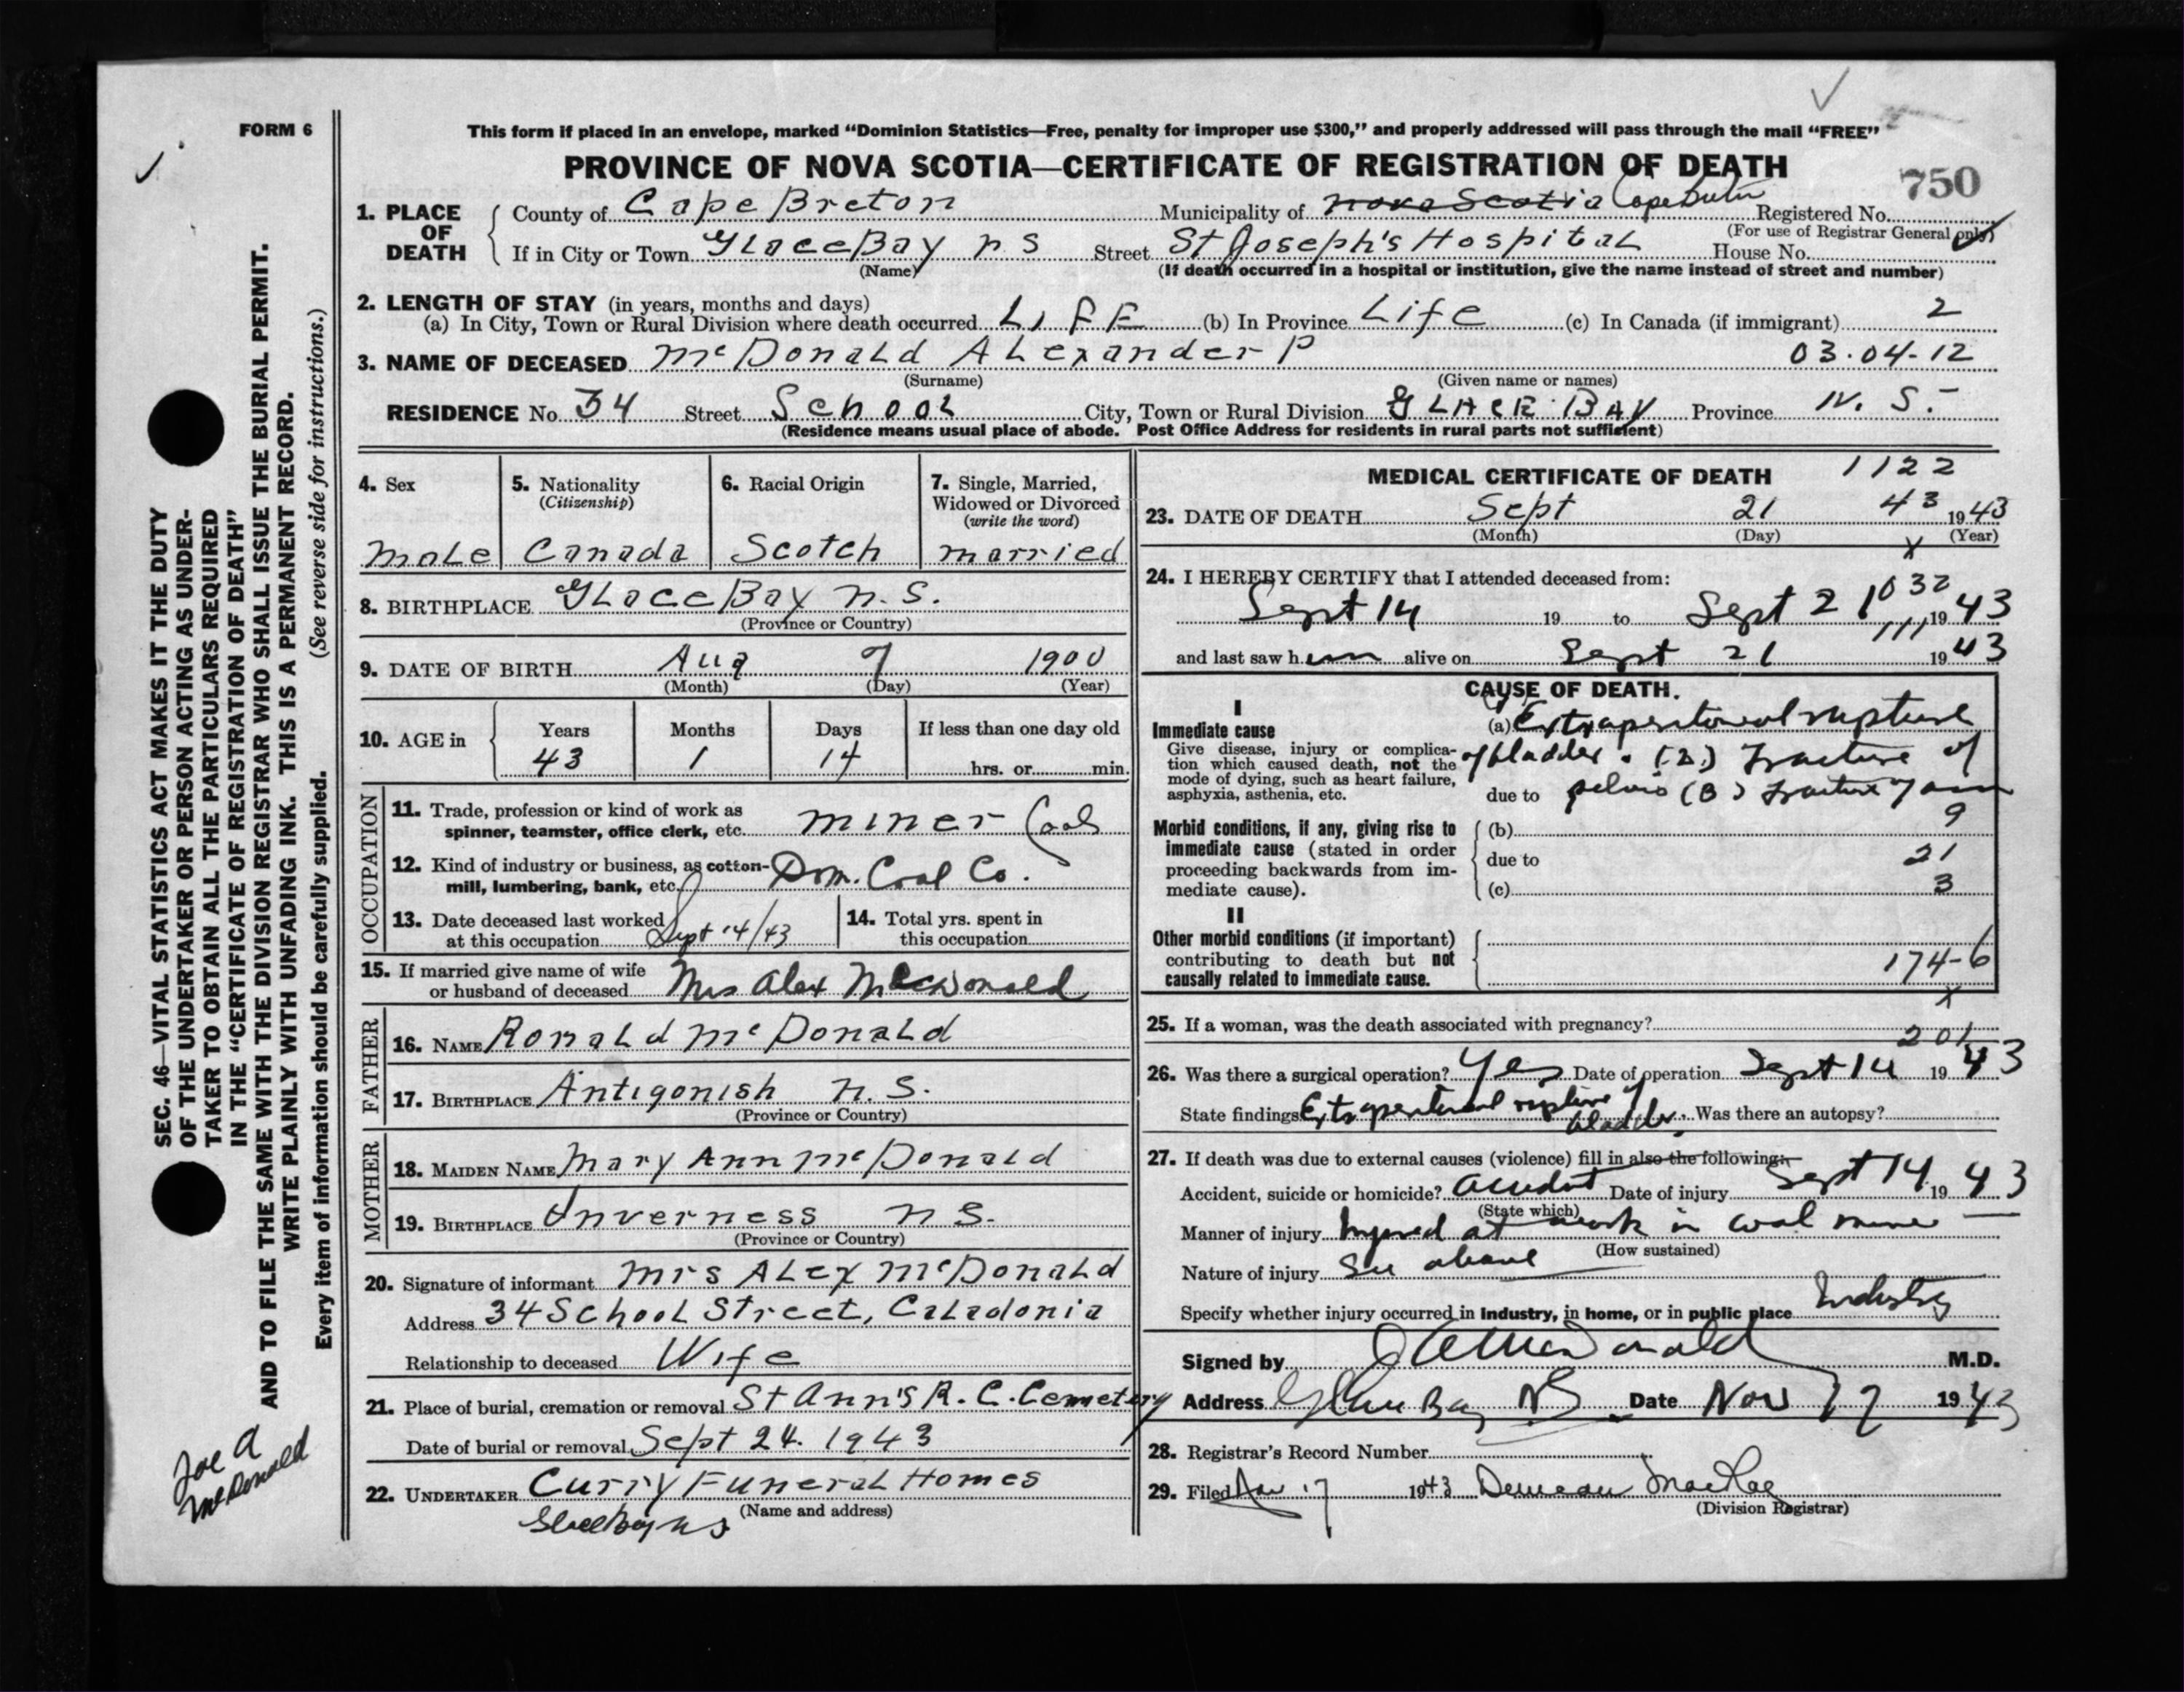 FORM 6
This form if placed in an envelope, marked “Dominion Statistics—Free, penalty for improper use $300,” and properly addressed will pass through the mail “FREE”
PROVINCE OF NOVA SCOTIA—CERTIFICATE OF REGISTRATION OF DEATH
750
1. PLACE OF DEATH
County of Cape Breton Municipality of Nova Scotia Cape Breton Registered No.
(For use of Registrar General only)
If in City or Town Glace Bay N.S Street St Joseph's Hospital House No.
(Name) (If death occurred in a hospital or institution, give the name instead of street and number)
2. LENGTH OF STAY (in years, months and days)
(a) In City, Town or Rural Division where death occurred LIFE (b) In Province Life (c) In Canada (if immigrant) 2
3. NAME OF DECEASED McDonald Alexander P 03.04-12
(Surname) (Given name or names)
RESIDENCE No. 34 Street School City, Town or Rural Division GLACE BAY Province N. S.
(Residence means usual place of abode. Post Office Address for residents in rural parts not sufficient)
4. Sex
male
5. Nationality
(Citizenship)
Canada
6. Racial Origin
Scotch
7. Single, Married,
Widowed or Divorced
(write the word)
married
8. BIRTHPLACE Glace Bay N.S.
(Province or Country)
9. DATE OF BIRTH Aug 7 1900
(Month) (Day) (Year)
10. AGE in
Years Months Days If less than one day old
43 1 14 hrs. or min.
OCCUPATION
11. Trade, profession or kind of work as
spinner, teamster, office clerk, etc. miner Coal
12. Kind of industry or business, as cotton-
mill, lumbering, bank, etc. Dom. Coal Co.
13. Date deceased last worked
at this occupation Sept 14/43
14. Total yrs. spent in
this occupation
15. If married give name of wife
or husband of deceased Mrs Alex McDonald
FATHER
16. NAME Ronald McDonald
17. BIRTHPLACE Antigonish N.S.
(Province or Country)
MOTHER
18. MAIDEN NAME Mary Ann McDonald
19. BIRTHPLACE Inverness N S.
(Province or Country)
20. Signature of informant Mrs Alex McDonald
Address 34 School Street, Caladonia
Relationship to deceased Wife
21. Place of burial, cremation or removal St Ann's R. C. Cemetery
Date of burial or removal Sept 24. 1943
22. UNDERTAKER Curry Funeral Homes
(Name and address)
Glace Bay NS
MEDICAL CERTIFICATE OF DEATH
1122
23. DATE OF DEATH Sept 21 43 1943
(Month) (Day) (Year)
X
24. I HEREBY CERTIFY that I attended deceased from:
1032
Sept 14 19 to Sept 21 1943
111
and last saw him alive on Sept 21 1943
CAUSE OF DEATH.
I
Immediate cause
Give disease, injury or complica-
tion which caused death, not the
mode of dying, such as heart failure,
asphyxia, asthenia, etc.
(a) Extraperitoneal rupture
of bladder. (2.) Fracture of
due to pelvis (3) Fracture of arm
Morbid conditions, if any, giving rise to
immediate cause (stated in order
proceeding backwards from im-
mediate cause).
(b) 9
due to 21
(c) 3
II
Other morbid conditions (if important)
contributing to death but not
causally related to immediate cause.
174-6
X
25. If a woman, was the death associated with pregnancy?
201
26. Was there a surgical operation? Yes Date of operation Sept 14 1943
State findings Extraperitoneal rupture of bladder. Was there an autopsy?
27. If death was due to external causes (violence) fill in also the following:
Accident, suicide or homicide? Accident Date of injury Sept 14 1943
(State which)
Manner of injury Injured at work in coal mine
(How sustained)
Nature of injury See above
Specify whether injury occurred in industry, in home, or in public place Industry
Signed by J A MacDonald M.D.
Address Glace Bay NS. Date Nov 17 1943
28. Registrar's Record Number
29. Filed Nov 17 1943 Duncan MacRae
(Division Registrar)
SEC. 46—VITAL STATISTICS ACT MAKES IT THE DUTY
OF THE UNDERTAKER OR PERSON ACTING AS UNDER-
TAKER TO OBTAIN ALL THE PARTICULARS REQUIRED
IN THE “CERTIFICATE OF REGISTRATION OF DEATH”
AND TO FILE THE SAME WITH THE DIVISION REGISTRAR WHO SHALL ISSUE THE BURIAL PERMIT.
WRITE PLAINLY WITH UNFADING INK. THIS IS A PERMANENT RECORD.
Every item of information should be carefully supplied. (See reverse side for instructions.)
Joe A
McDonald